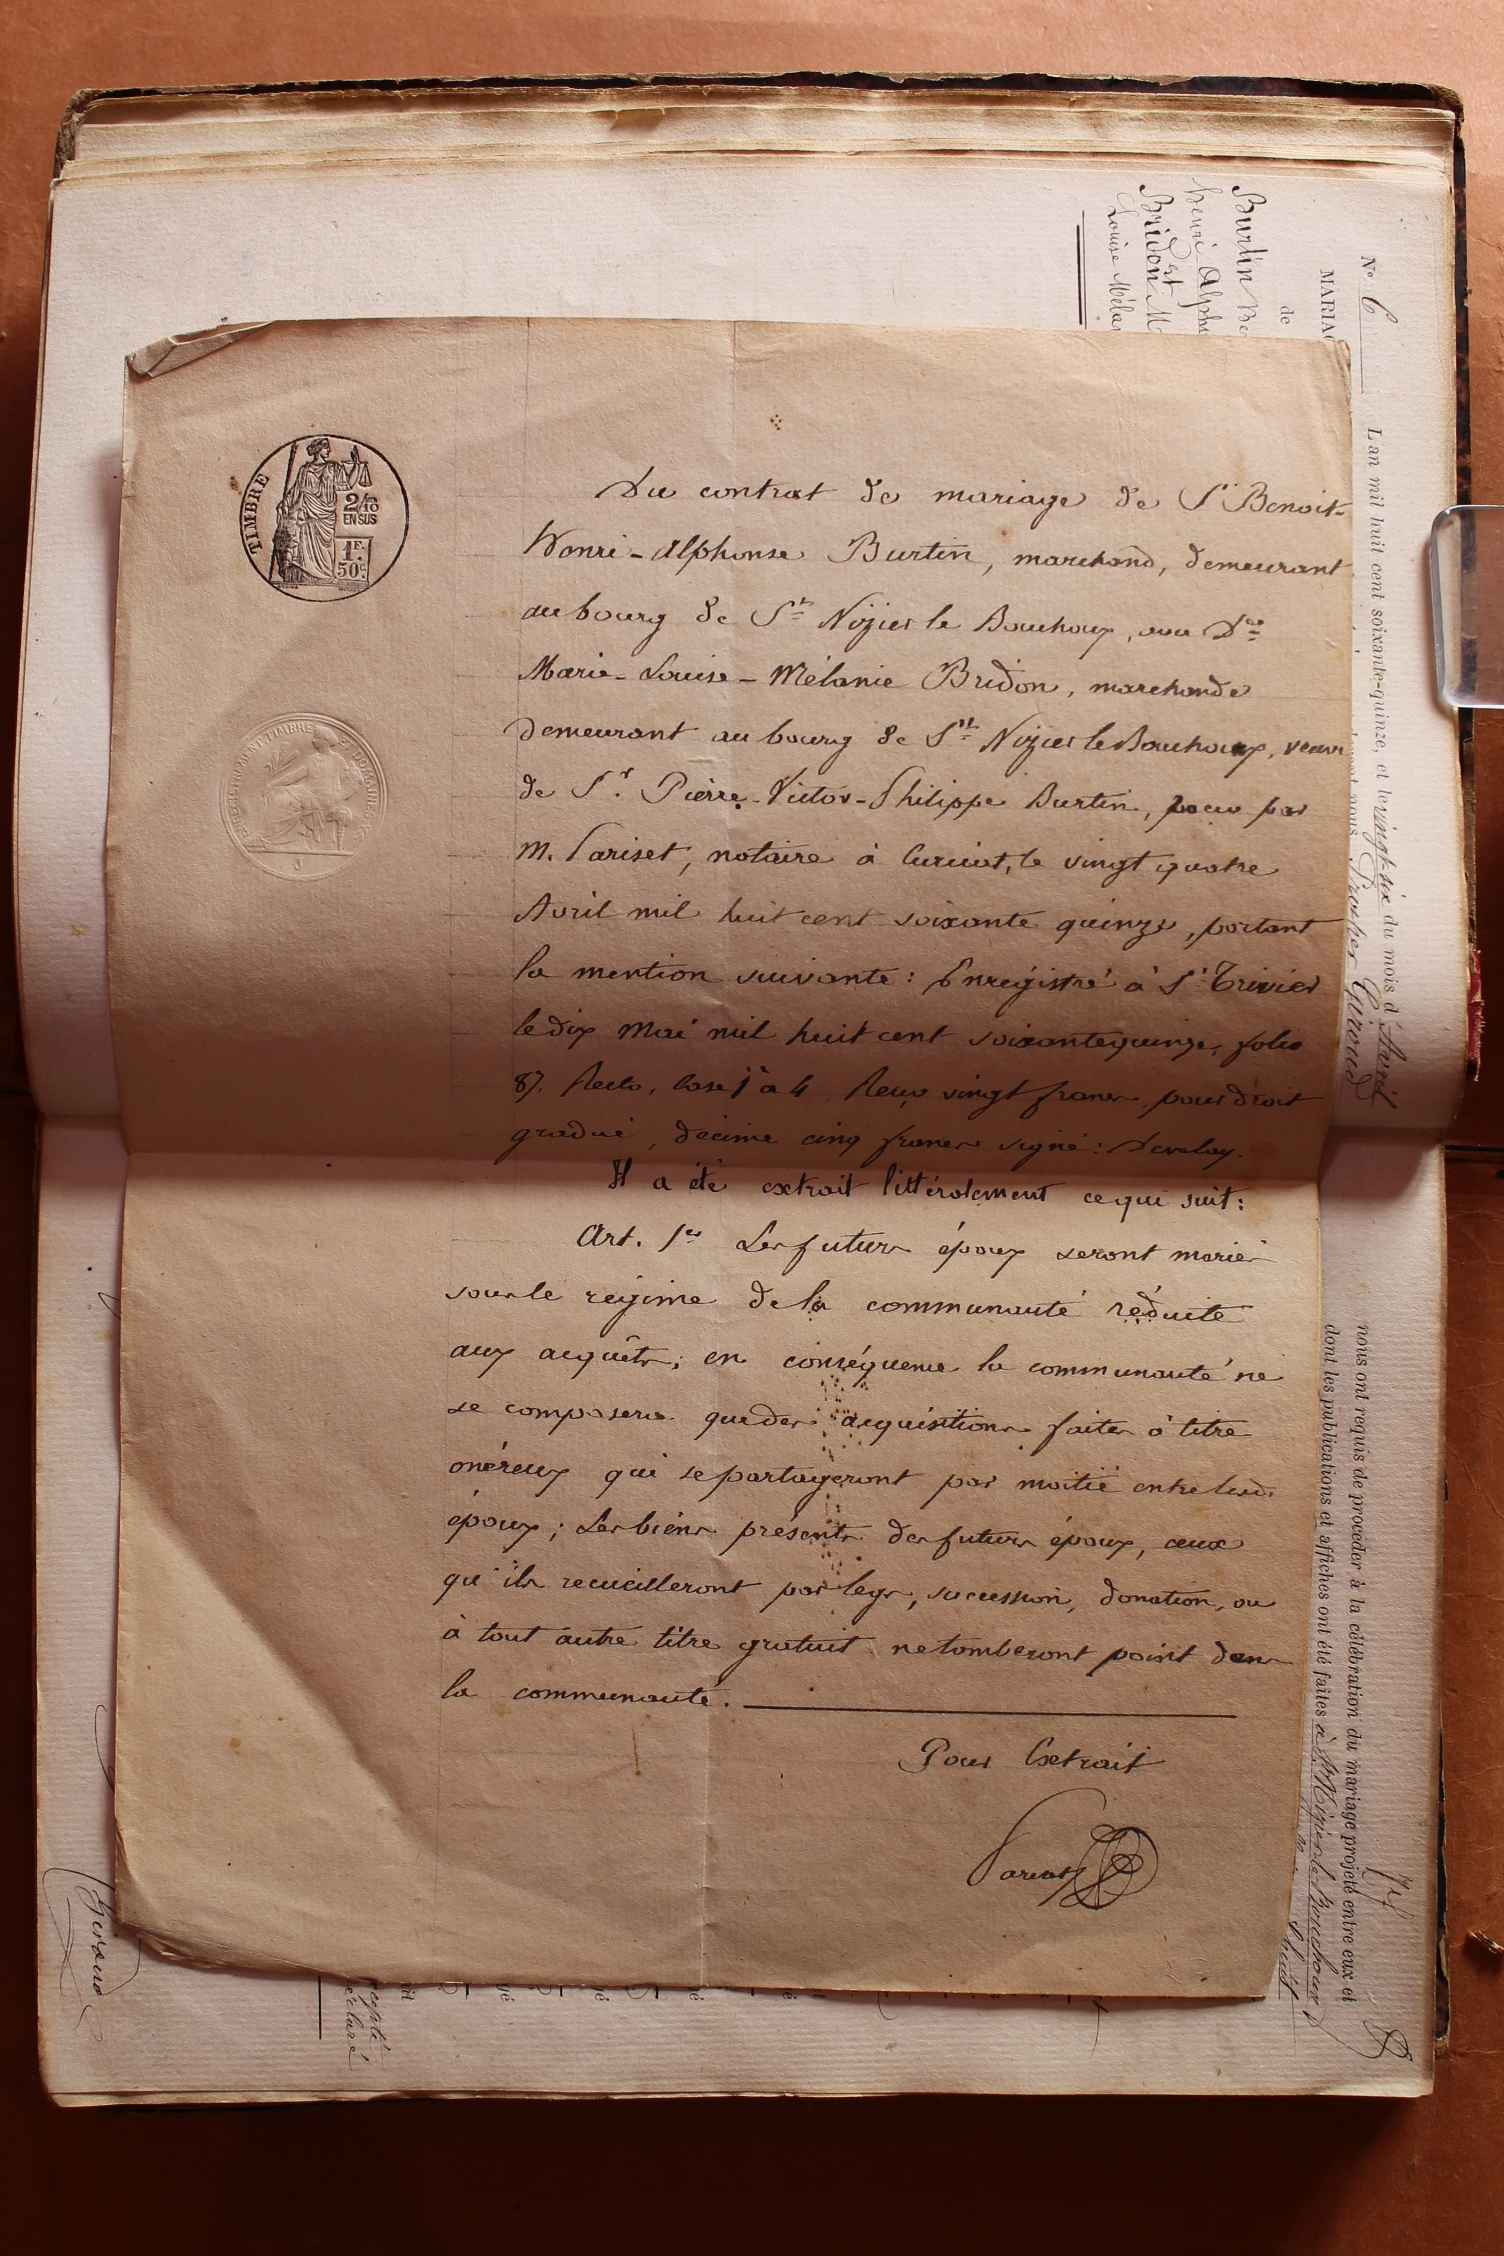 N° 6
MARIAG
de
Burtin Be
henri Alpho
et
Bridon M
Louise Mélan
L'an mil huit cent soixante-quinze, et le vingt-six du mois d'Avril
Prosper Giroud
nous ont requis de procéder à la célébration du mariage projeté entre eux et
dont les publications et affiches ont été faites à St Nizier le Bouchoux
TIMBRE
2/10
EN SUS
1F.
50c.
Du contrat de mariage de Sr Benoit-
Henri-Alphonse Burtin, marchand, demeurant
au bourg de St Nizier le Bouchoux, avec Dme
Marie-Louise-Mélanie Bridon, marchande
demeurant au bourg de St Nizier le Bouchoux, veuve
de Sr. Pierre-Victor-Philippe Burtin, reçu par
M. Pariset, notaire à Curciat, le vingt quatre
Avril mil huit cent soixante quinze, portant
la mention suivante: Enregistré à St Trivier
le dix Mai mil huit cent soixante quinze, folio
87. Recto, Case 1 à 4 Reçu vingt francs pour droit
gradué, décime cinq francs signé: Develay.
Il a été extrait littéralement ce qui suit:
Art. 1er Les futurs époux seront mariés
sous le régime de la communauté réduite
aux acquêts; en conséquence la communauté ne
se composera que des acquisitions faites à titre
onéreux qui se partageront par moitié entre lesd.
époux; Les biens présents des futurs époux, ceux
qu'ils recueilleront par legs, succession, donation, ou
à tout autre titre gratuit ne tomberont point dans
la communauté.
Pour Extrait
Pariset